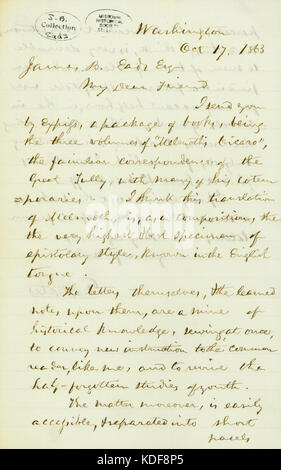 J. B.
Collection
Eads
MISSOURI
HISTORICAL
SOCIETY
Washington
Oct 17, 1863
James B. Eads Esqr
My dear Friend
I send you
by Express, a package of books, being
the three volumes of "Melmoth's Cicero",
the familiar correspondence of the
Great Tully, with many of his cotem
=poraries. I think this translation
of Melmoth is, as a composition, the
the very highest best specimen of
epistolary style, known in the English
tongue.
The letters themselves, & the learned
notes upon them, are a mine of
historical knowledge, serving at once,
to convey new instruction to the common
reader, like me, and to revive the
half-forgotten studies of youth.
The matter moreover, is easily
accessible, separated into short
parcels
alamy
alamy stock photo
KDF8P5
www.alamy.com